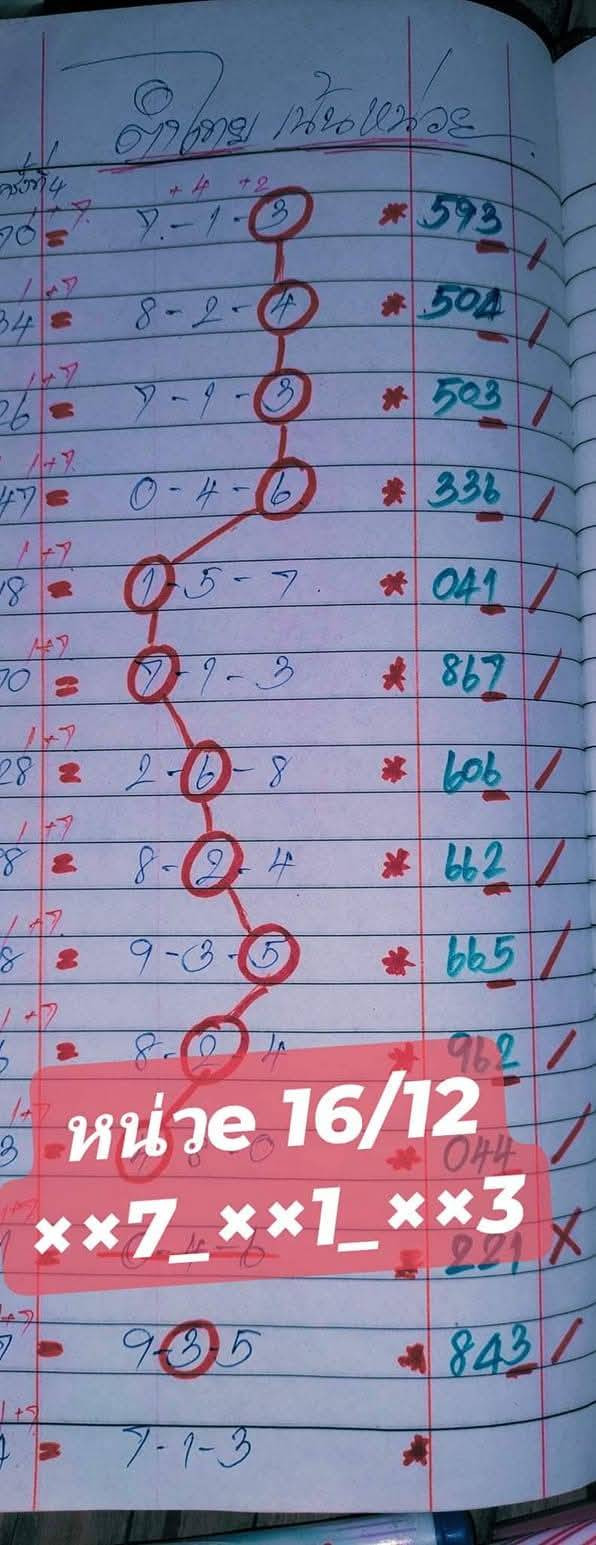 คำนวย เน้นหน่วย
ครั้งที่ 4
+4 +2
1+7
70 = 7-1-3 * 593 /
1+7
34 = 8-2-4 * 504 /
1+7
26 = 7-1-3 * 503 /
1+7
47 = 0-4-6 * 336 /
1+7
18 = 1-5-7 * 041 /
1+7
70 = 7-1-3 * 867 /
1+7
28 = 2-6-8 * 606 /
1+7
8 = 8-2-4 * 662 /
1+7
8 = 9-3-5 * 665 /
1+7
= 8-2-4 * 962 /
หน่วe 16/12
1+7
3 = * 044 /
××7_××1_××3
= 0-4-6 = 221 ×
+7
7 = 9-3-5 * 843 /
1+7
= 7-1-3 *